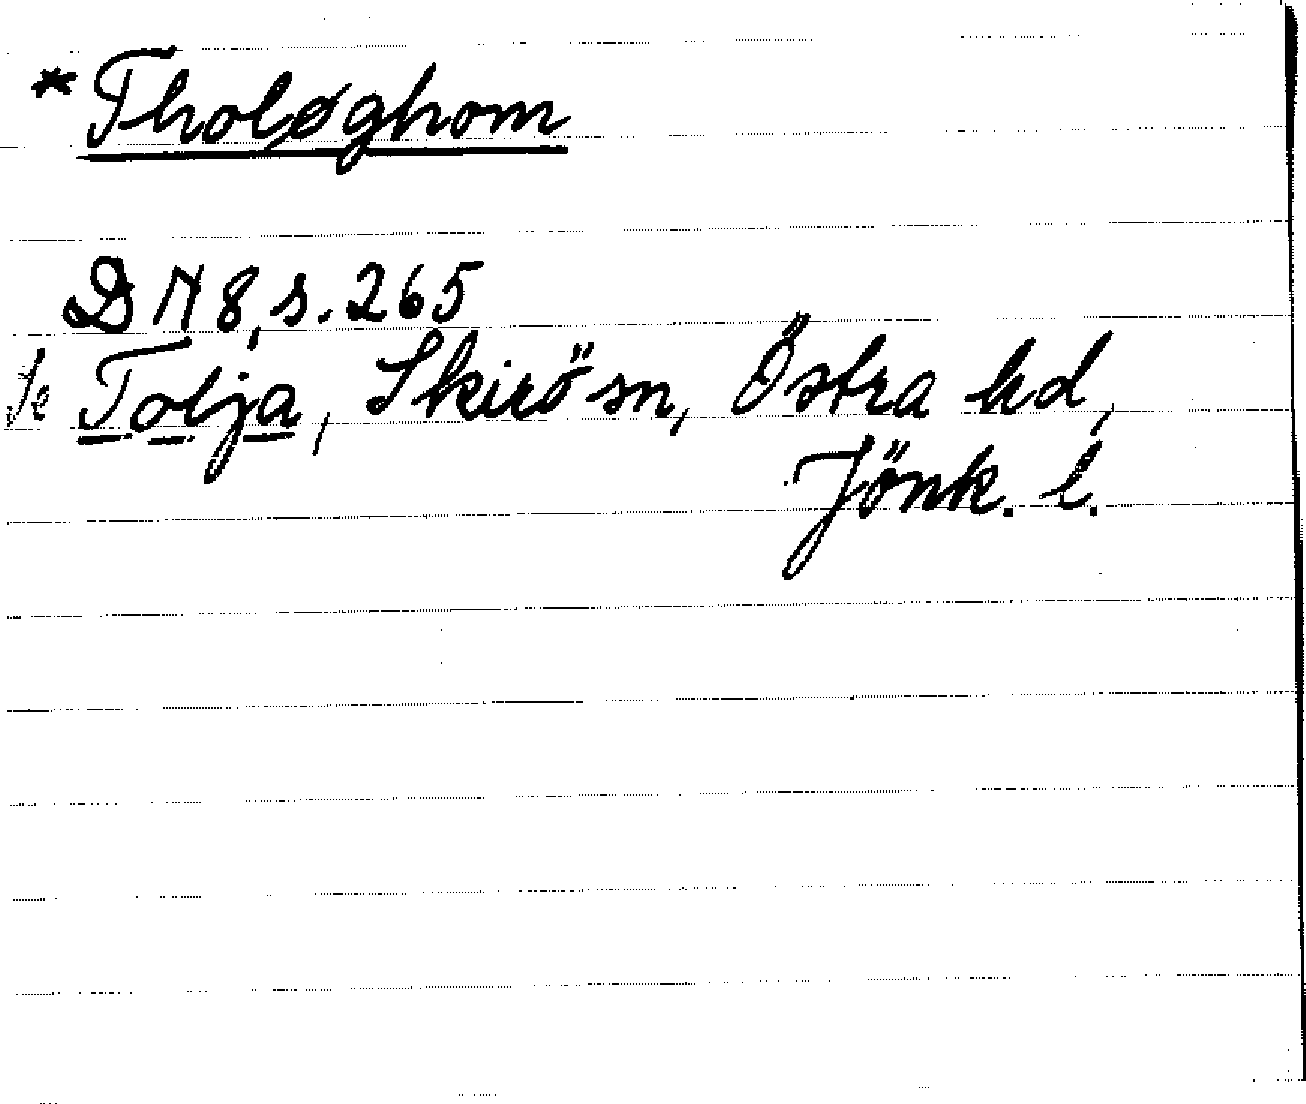 *Tholøghom
DN 8, s. 265
Se Tolja, Skirö sn, Östra hd,
Jönk. l.